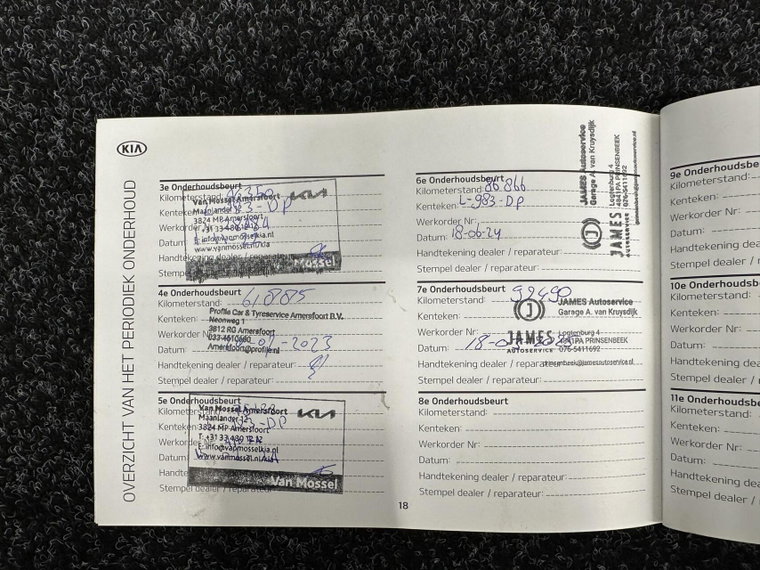 KIA
OVERZICHT VAN HET PERIODIEK ONDERHOUD
3e Onderhoudsbeurt
Kilometerstand
Kenteken
Werkorder
Datum:
Handtekening dealer
Stempel
Van Mossel Amersfoort
Maanlander
3824 MP Amersfoort
E: info@vanmosselkia.nl
www.vanmossel.nl/kia
KIA
Mossel
4e Onderhoudsbeurt
Kilometerstand: 61885
Kenteken:
Werkorder Nr:
Datum: 2023
Handtekening dealer / reparateur:
Stempel dealer / reparateur:
Profile Car & Tyreservice Amersfoort B.V.
Neonweg 1
3812 RG Amersfoort
033-4610680
Amersfoort@profile.nl
5e Onderhoudsbeurt
Kilometerstand
Kenteken
Werkorder
Datum:
Handte
Stempel dealer / reparateur:
Van Mossel Amersfoort
Maanlander
3824 MP Amersfoort
T: +31 33 480 12 12
E: info@vanmosselkia.nl
www.vanmossel.nl/kia
KIA
Van Mossel
6e Onderhoudsbeurt
Kilometerstand 86866
Kenteken: L-983-DP
Werkorder Nr:
Datum: 18-06-24
Handtekening dealer / reparateur:
Stempel dealer / reparateur:
JAMES Autoservice
Garage A. van Kruysdijk
JAMES
AUTOSERVICE
Logtenburg 4
4841PA PRINSENBEEK
076-5411692
7e Onderhoudsbeurt
Kilometerstand: 99490
Kenteken:
Werkorder Nr:
Datum: 18-
Handtekening dealer / reparateur:
Stempel dealer / reparateur:
JAMES Autoservice
Garage A. van Kruysdijk
JAMES
AUTOSERVICE
Logtenburg 4
4841PA PRINSENBEEK
076-5411692
prinsenbeek@jamesautoservice.nl
8e Onderhoudsbeurt
Kilometerstand:
Kenteken:
Werkorder Nr:
Datum:
Handtekening dealer / reparateur:
Stempel dealer / reparateur:
18
9e Onderhoudsbe
Kilometerstand:
Kenteken:
Werkorder Nr:
Datum:
Handtekening dea
Stempel dealer /
10e Onderhoudsbe
Kilometerstand:
Kenteken:
Werkorder Nr:
Datum:
Handtekening
Stempel dealer
11e Onderhoudsb
Kilometerstand:
Kenteken:
Werkorder Nr:
Datum:
Handtekening de
Stempel dealer /